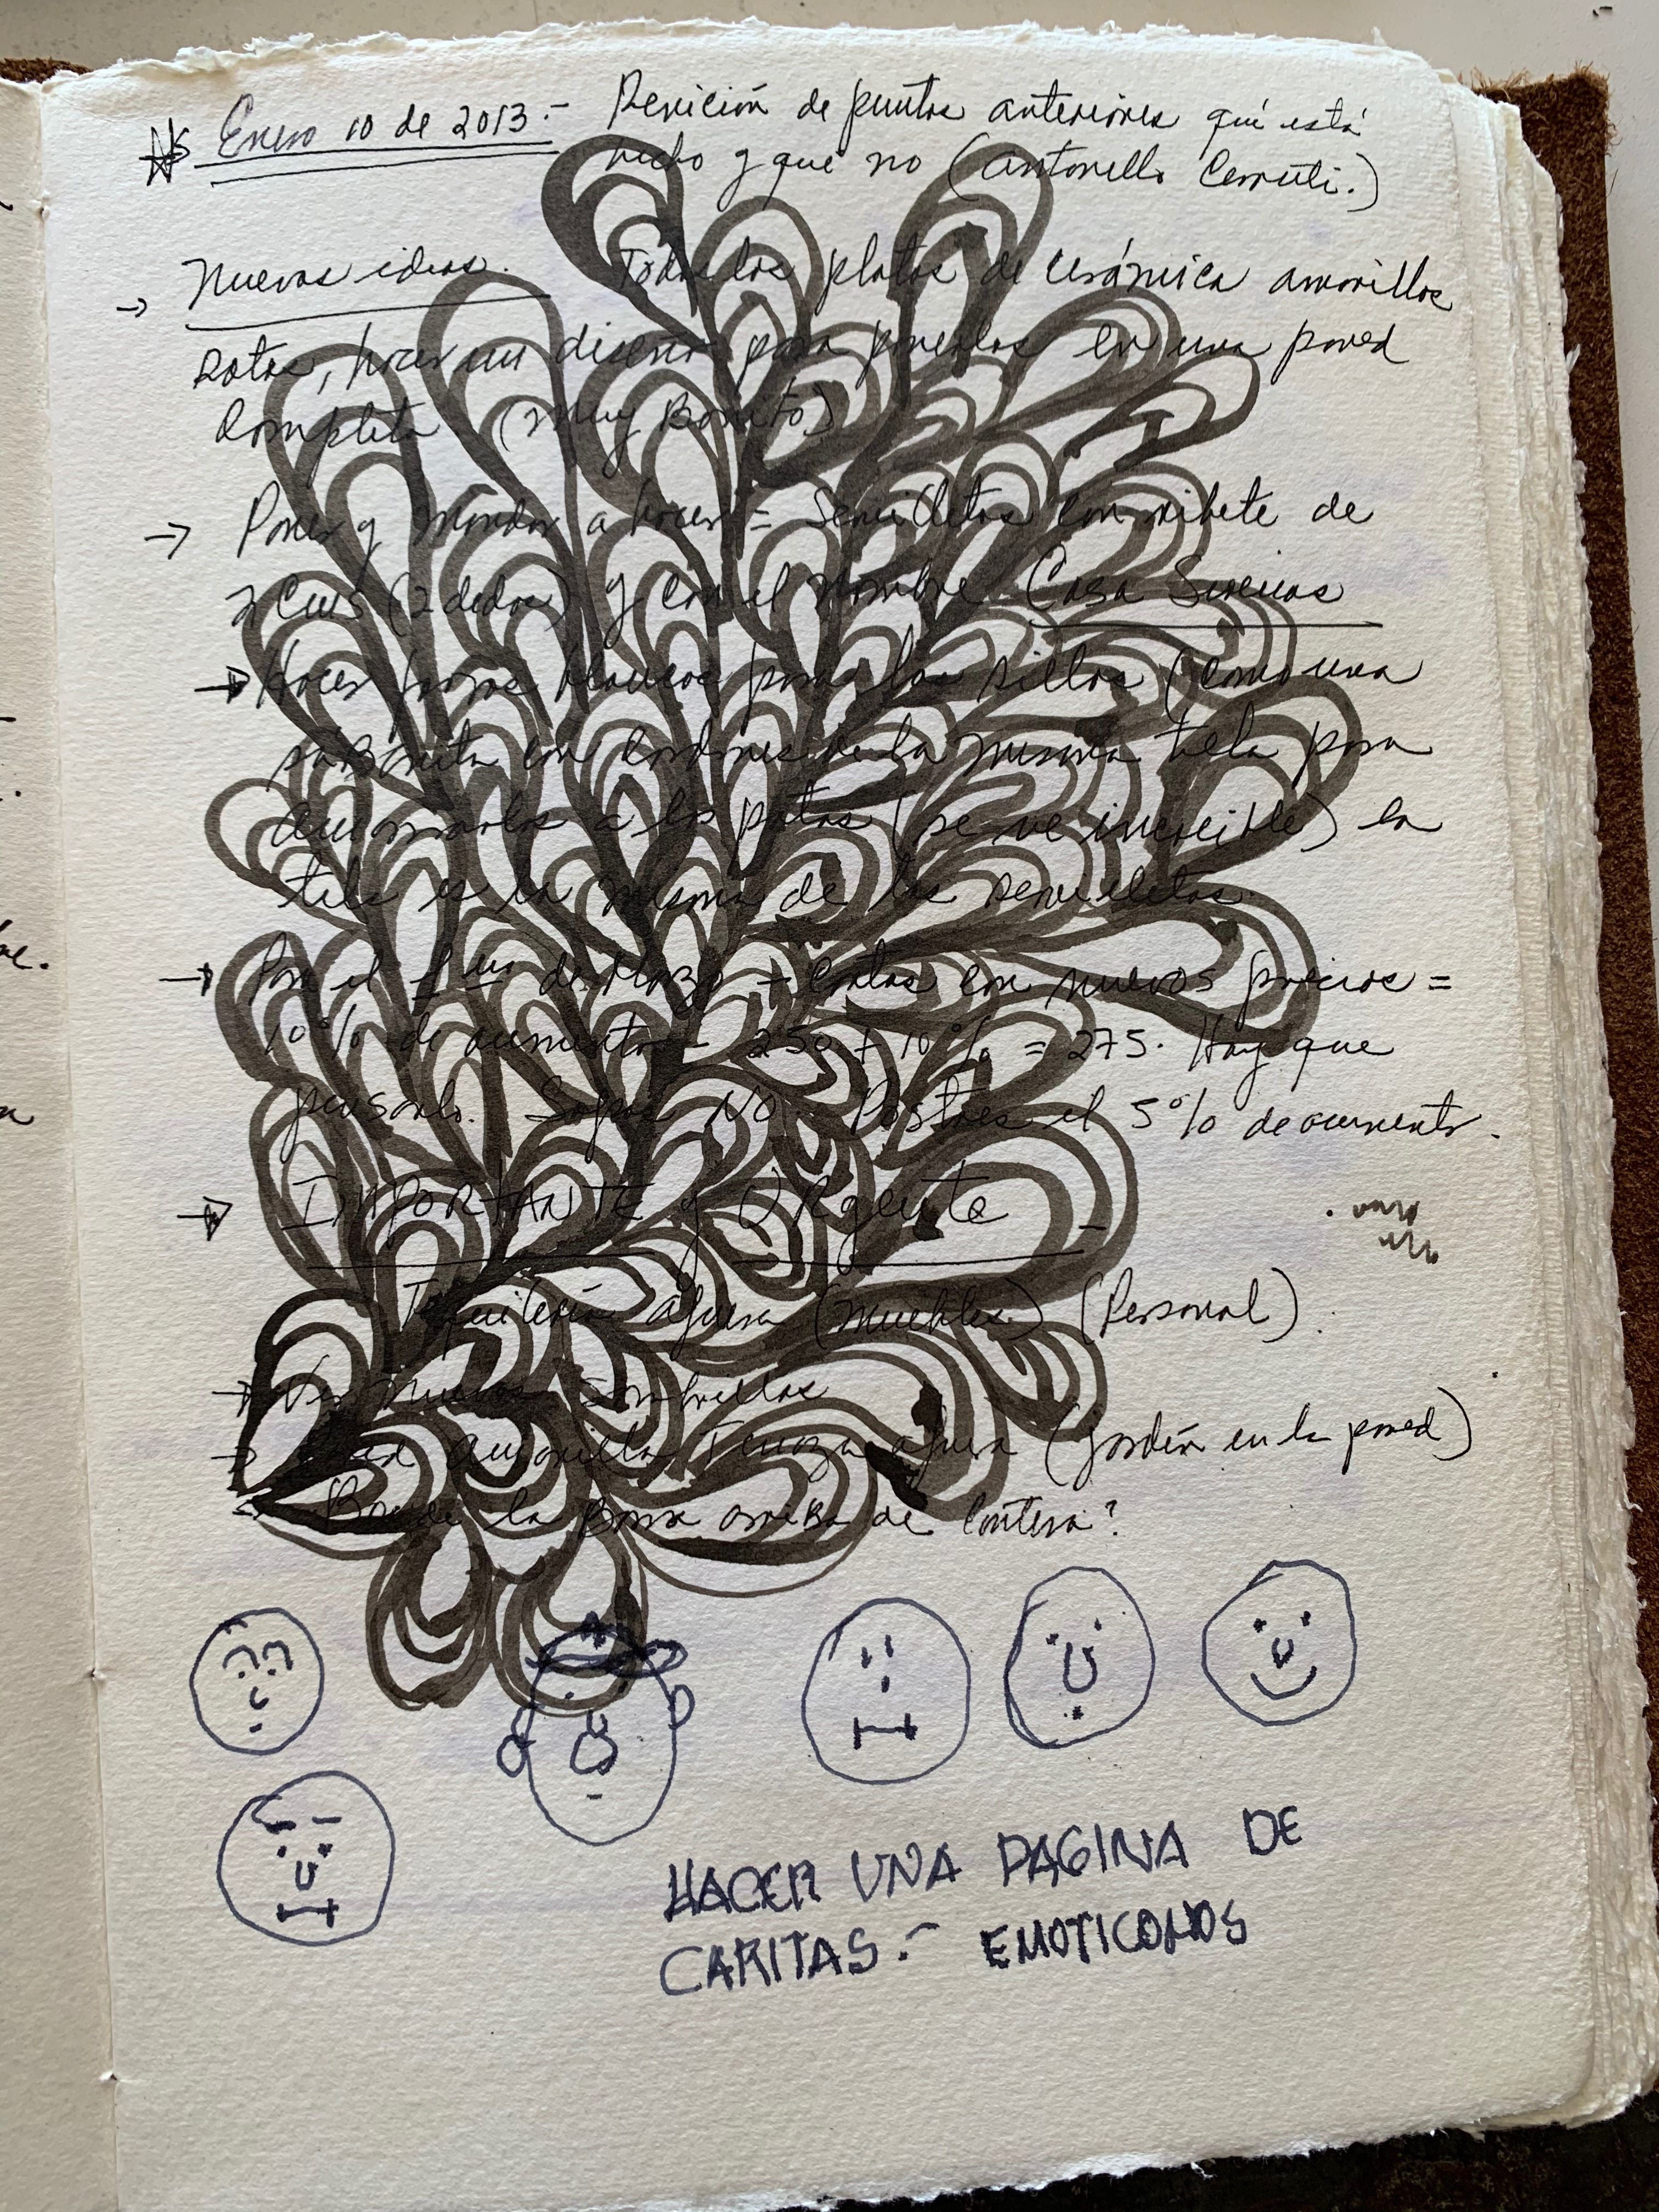 Enero 10 de 2013.- Revición de puntos anteriores qué está
hecho y que no (Antonello Cerruti.)
→ Nuevas ideas. Todos los platos de cerámica amarillos
rotos, hacer un diseño para ponerlos en una pared
completa (muy Bonito)
→ Poner y mandar a hacer = Servilletas con ribete de
2 cms (2 dedos) y con el nombre Casa Sirenas
→ Hacer forros blancos para las sillas (como una
sabanita con cordones de la misma tela para
amarrarlos a las patas (se ve increible) la
tela es la misma de las servilletas.
→ Para el 1ero de Marzo → Cartas con nuevos precios =
10% de aumento - 250 + 10% = 275. Hay que
pensarlo. Sopas NO Postres el 5% de aumento.
→ IMPORTANTE y URgente
Tequilería afuera (muebles) (Personal).
→ Ver nuevas Sombrillas
→ Pared amarilla Terraza afuera (jardín en la pared)
→ la Barra arriba de Cantera?
HACER UNA PAGINA DE
CARITAS.- EMOTICONOS